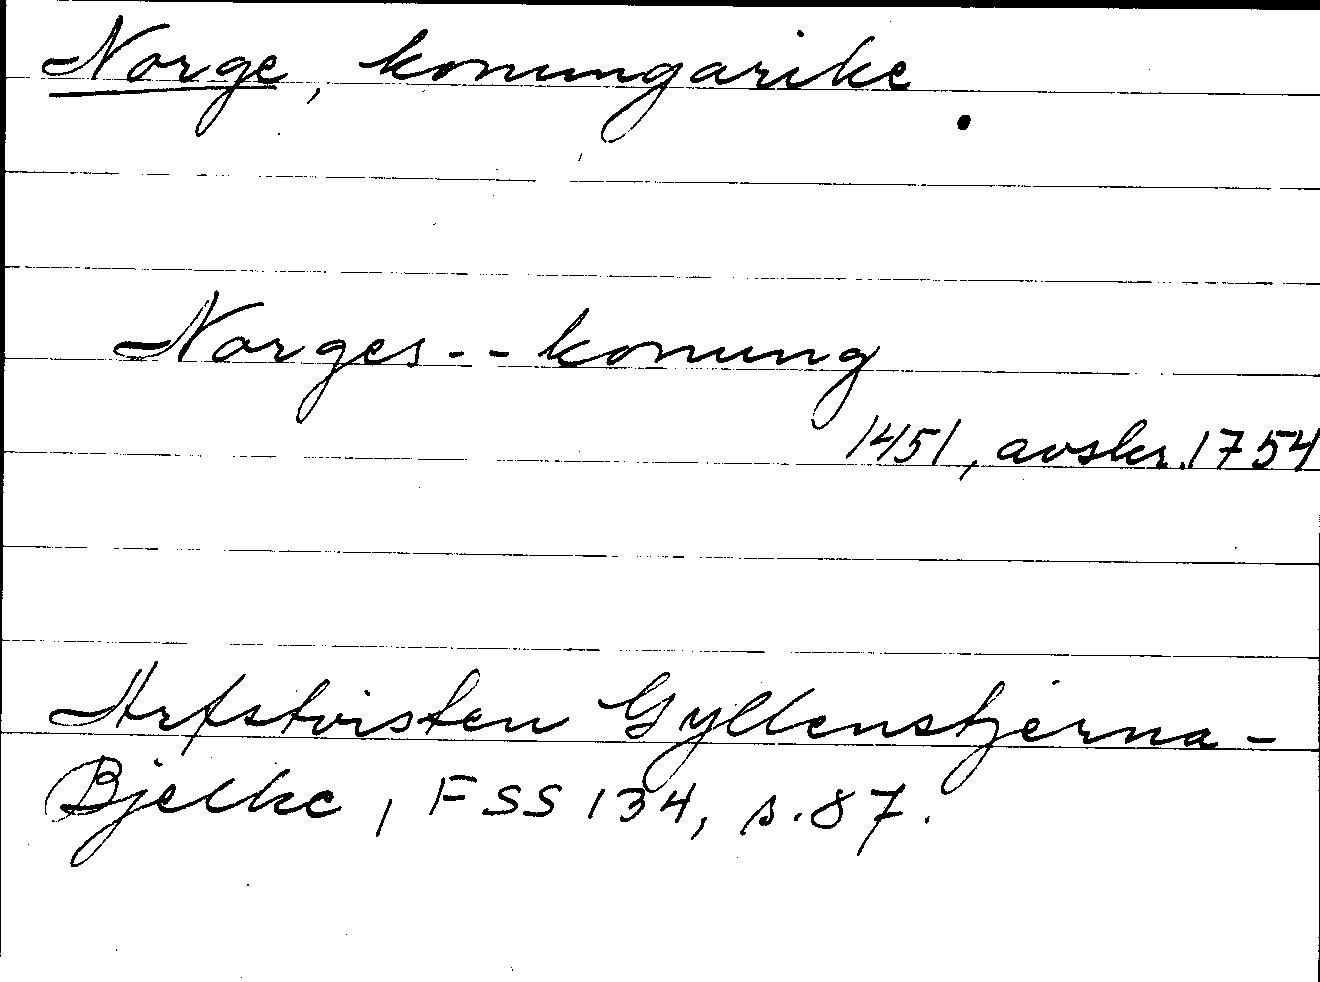 Norge, konungarike.
Norges--konung
1451, avskr. 1754
Arfstvisten Gyllenstjerna-
Bjelke, FSS 134, s. 87.